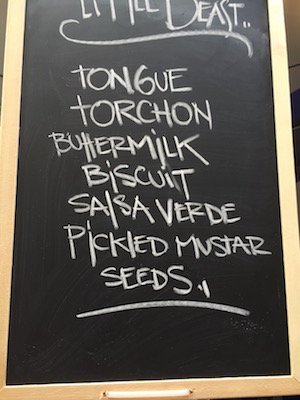 LITTLE BEAST..
TONGUE
TORCHON
BUTTERMILK
BISCUIT
SALSA VERDE
PICKLED MUSTAR
SEEDS.